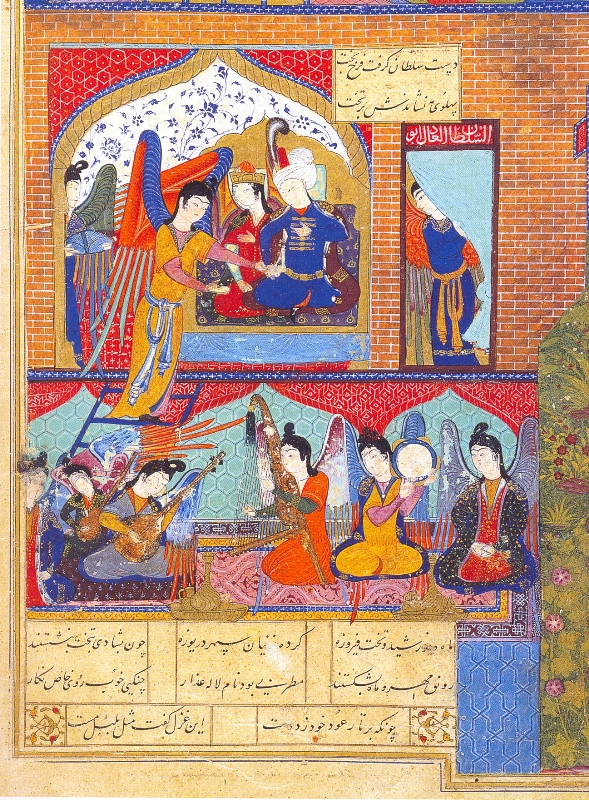 دست سلطان گرفت و
پهلوی
السلطان العادل ابو
ماه و خورشید و تخت فیروزه
کرده زیشان سپهر دریوزه
چون بشادی بتخت بنشستند
رونق مهر و ماه بشکستند
مطربی بود نام لاله عذار
چنگیی خوب روی خاص نگار
چونکه بر تار عود خود زد دست
این غزل گفت مثل بلبل مست